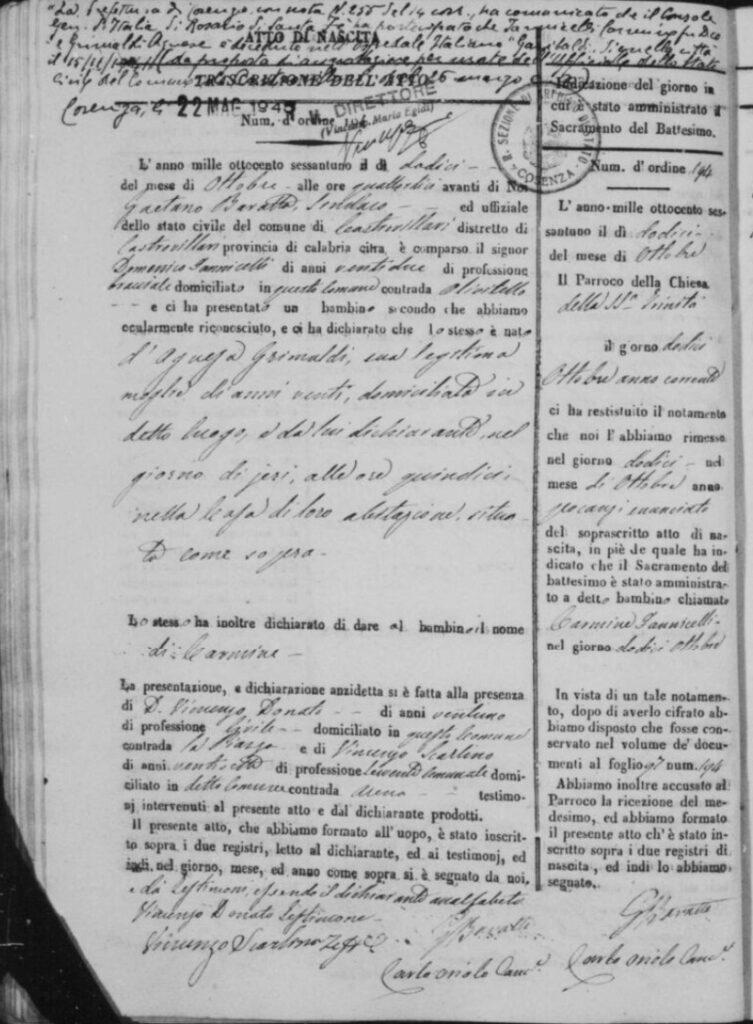 "La Prefettura di Cosenza con nota N. 255 del 14 corr., ha comunicato che il Console
gen. d'Italia di Rosario di Santa Fè ha partecipato che Iannicelli Carmine fu Do
e Grimaldi Agnese è deceduto nell'Ospedale Italiano "Garibaldi" di quella città
ATTO DI NASCITA
il 15/11/
Civile del Comune marzo
TRASCRIZIONE DELL'ATTO
Cosenza, li 22 MAG 194
DIRETTORE
(Vincenzo Maria Egidi)
Num. d'ordine 194
L'anno mille ottocento sessantuno il dì dodici
del mese di Ottobre alle ore quattordici avanti di Noi
Gaetano Baratta, Sindaco ed uffiziale
dello stato civile del comune di Castrovillari distretto di
Castrovillari provincia di calabria citra, è comparso il signor
Domenico Iannicelli di anni ventidue di professione
bracciale domiciliato in questo Comune contrada
e ci ha presentato un bambino secondo che abbiamo
ocularmente riconosciuto, e ci ha dichiarato che lo stesso è nato
d'Agnesa Grimaldi, sua legittima
moglie di anni venti, domiciliata in
detto luogo, e da lui dichiarante, nel
giorno di jeri, alle ore quindici
nella Casa di loro abitazione, situa-
ta come sopra-
Lo stesso ha inoltre dichiarato di dare al bambino il nome
di Carmine
La presentazione, e dichiarazione anzidetta si è fatta alla presenza
di D. Vincenzo Donato di anni ventuno
di professione Civile domiciliato in questo Comune
contrada la e di Vincenzo Scarlino
di anni di professione Serviente Comunale domi-
ciliato in detto Comune contrada arena testimo-
nj intervenuti al presente atto e dal dichiarante prodotti.
Il presente atto, che abbiamo formato all'uopo, è stato inscrit-
to sopra i due registri, letto al dichiarante, ed ai testimonj, ed
indi nel giorno, mese, ed anno come sopra si è segnato da noi,
e da testimoni, essendo il dichiarante analfabeto
Vincenzo Donato Testimone
Vincenzo Scarlino
G Baratta
Carlo Canc.e
R. SEZIONE DI ARCHIVIO DI STATO
COSENZA
Indicazione del giorno in
cui è stato amministrato il
Sacramento del Battesimo.
Num. d'ordine 194
L'anno-mille ottocento ses-
santuno il dì dodici
del mese di Ottobre
Il Parroco della Chiesa
della SS.a Trinità
il giorno dodici
Ottobre anno corrente
ci ha restituito il notamento
che noi l'abbiamo rimesso
nel giorno dodici nel
mese di Ottobre anno
pocanzi enunciato
del soprascritto atto di na-
scita, in piè de quale ha in-
dicato che il Sacramento del
battesimo è stato amministra-
to a detto bambino chiamato
Carmine Iannicelli
nel giorno dodici Ottobre
In vista di un tale notamen-
to, dopo di averlo cifrato ab-
biamo disposto che fosse con-
servato nel volume de' docu-
menti al foglio 97 num. 194
Abbiamo inoltre accusato al
Parroco la ricezione del me-
desimo, ed abbiamo formato
il presente atto ch'è stato in-
scritto sopra i due registri di
nascita, ed indi lo abbiamo
segnato.
G Baratta
Carlo Canc.e